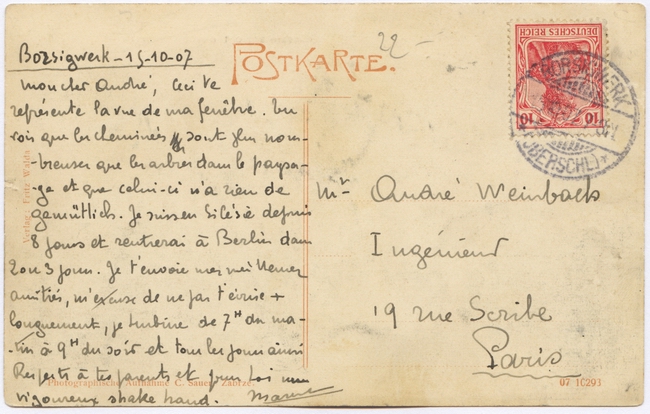 Borsigwerk - 15-10-07
POSTKARTE.
22-
mon cher André, Ceci te
représente la vue de ma fenêtre. Tu
vois que les cheminées sont plus nom-
-breuses que les arbres dans le paysa-
-ge et que celui-ci n'a rien de
gemütlich. Je suis en Silésie depuis
8 jours et rentrerai à Berlin dans
2 ou 3 jours. Je t'envoie mes meilleures
amitiés, m'excuse de ne pas t'écrire +
longuement, je turbine de 7H du ma-
-tin à 9H du soir et tous les jours ainsi
Respects à tes parents et pour toi un
vigoureux shake hand.
DEUTSCHES REICH
10 10
BORSIGWERK
(OBERSCHL)
Mr André Weinbach
Ingénieur
19 rue Scribe
Paris
Verlag Fritz
Photographische Aufnahme C. Sauer Zabrze.
07 10293